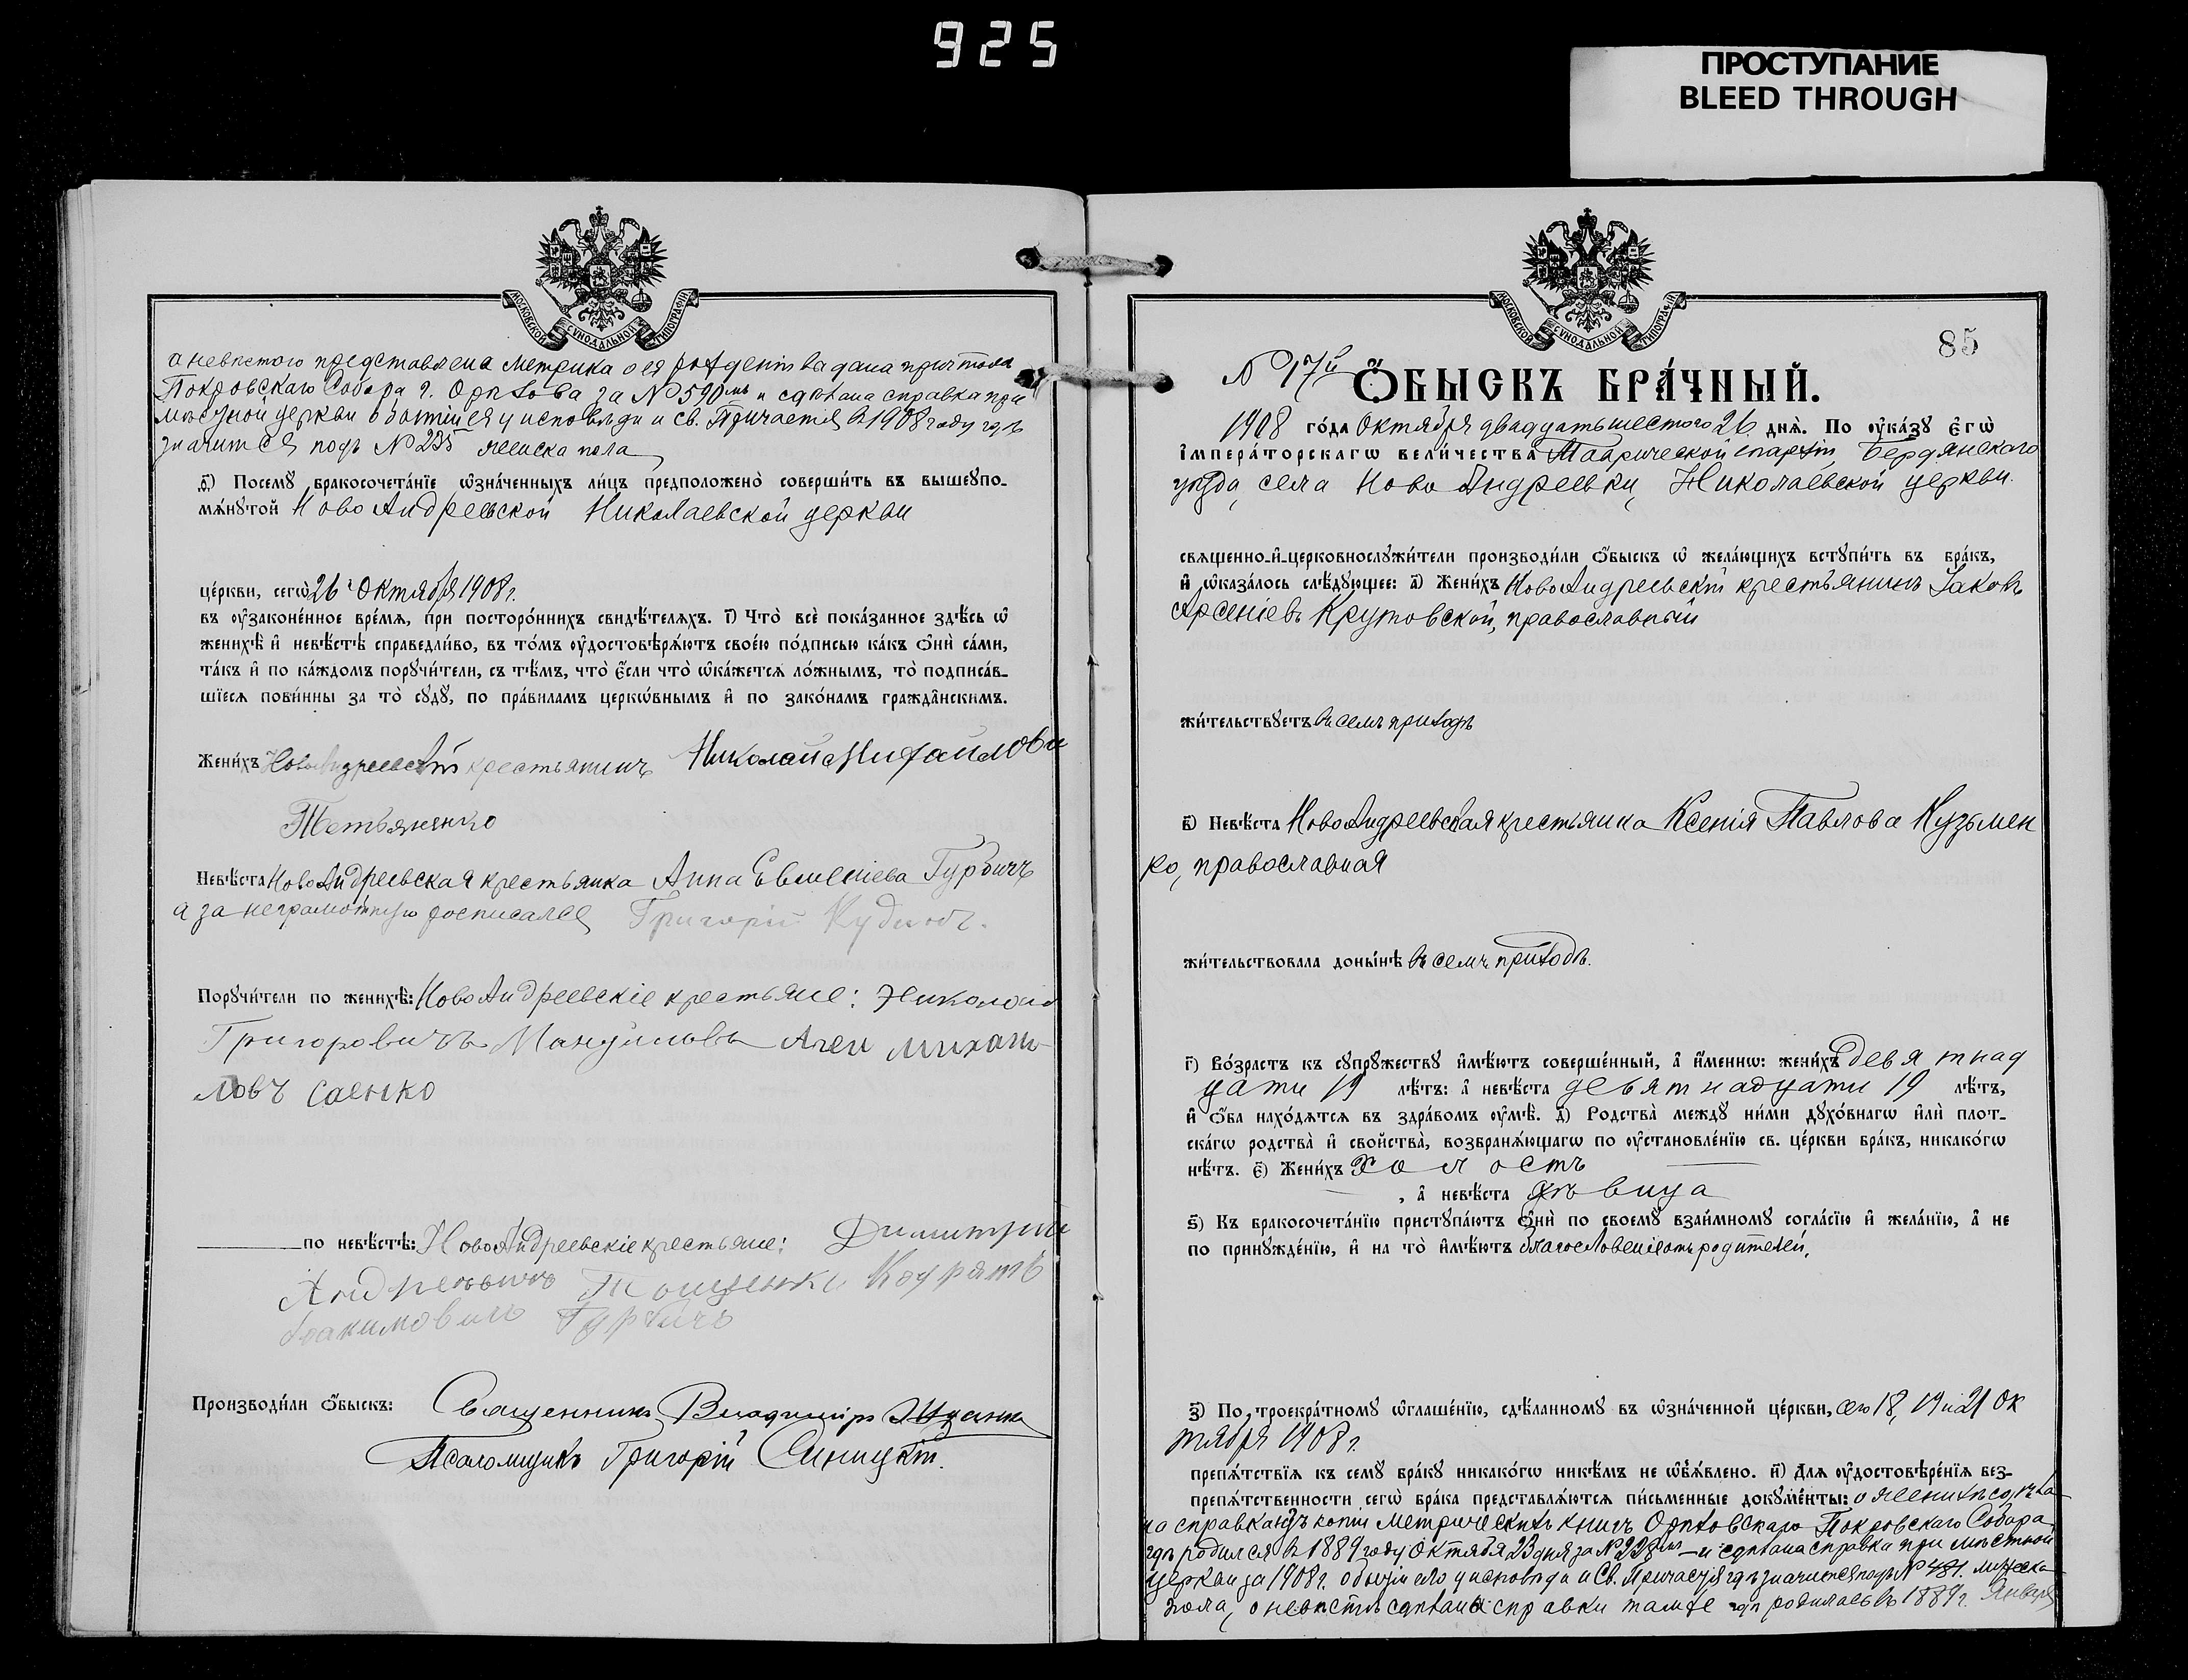 925
ПРОСТУПАНИЕ
BLEED THROUGH
МОСКОВСКОЙ СУНОДАЛЬНОЙ ТИПОГРАФІИ
а невѣстою представлена метрика о ея рожденіи выдана причтомъ
Покровскаго Собора г. Орѣхова за № 590мъ и сдѣлана справка при
мѣстной церкви о бытіи ея у исповѣди и св. Причастія въ 1908 году гдѣ
значится подъ № 235 женска пола
д҃і) Посемꙋ бракосочета́нїе ѡ҆зна́ченныхъ ли́цъ предположено̀ соверши́ть въ вышеꙋпо-
мѧ́нꙋтой Ново Андреевской Николаевской церкви
це́ркви, сегѡ̀ 26 Октября 1908 г.
въ ᲂу҆законе́нное вре́мѧ, при посторо́ннихъ свидѣ́телѧхъ. і҃) Что̀ всѐ пока́занное здѣ́сь ѡ҆
женихѣ̀ и҆ невѣ́стѣ справедли́во, въ то́мъ ᲂу҆достовѣрѧ́ютъ свое́ю по́дписью ка́къ ѻ҆нѝ са́ми,
та́къ и҆ по ка́ждомъ порꙋчи́тели, съ тѣ́мъ, что̀ є҆́сли что̀ ѡ҆ка́жетсѧ ло́жнымъ, то̀ подписа́в-
шїесѧ пови́нны за то̀ сꙋдꙋ̀, по пра́виламъ церко́внымъ и҆ по зако́намъ гражда̑нскимъ.
Жени́хъ НовоАндреевскій крестьянинъ Николай Михайловъ
Тетьяненко
Невѣ́ста НовоАндреевская крестьянка Анна Евменіева Гурбичъ
а за неграмотную росписался Григорій Кудиновъ.
Порꙋчи́тели по женихѣ̀: НовоАндреевскіе крестьяне: Николай
Григоровичъ Мануиловъ Алеи михаи-
ловъ саенко
по невѣ́стѣ: НовоАндреевскіе крестьяне: Димитрій
Андреевичъ Тощенко Кодратъ
Іоакимовичъ Гурбичъ
Производи́ли ѻ҆́быскъ: Священникъ Владиміръ
Псаломщикъ Григорій Синицкій.
МОСКОВСКОЙ СУНОДАЛЬНОЙ ТИПОГРАФІИ
85
№ 17й ѺБЫСКЪ БРА́ЧНЫЙ.
1908 го́да Октября двадцать шестого 26 днѧ̀. По ᲂу҆ка́зꙋ є҆гѡ̀
і҆мпера́торскагѡ вели́чества Таврической епархіи, Бердянскаго
уѣзда, села Ново Андреевки, Николаевской церкви.
свѧщенно-и҆-церковнослꙋжи́тели производи́ли ѻ҆́быскъ ѡ҆ жела́ющихъ встꙋпи́ть въ бра́къ,
и҆ ѡ҆каза́лось слѣ́дꙋющее: а҃) Жени́хъ НовоАндреевскій крестьянинъ Іаковъ
Арсеніевъ Крутовской, православный
жи́тельствꙋетъ въ семъ приходѣ
в҃) Невѣ́ста НовоАндреевская крестьянка Ксенія Павлова Кузьмен
ко, православная
жи́тельствовала доны́нѣ въ семъ приходѣ.
г҃) Во́зрастъ къ сꙋпрꙋ́жествꙋ и҆мѣ́ютъ соверше́нный, а҆ и҆́меннѡ: жени́хъ девятнад
цати 19 лѣ́тъ: а҆ невѣ́ста девятнадцати 19 лѣ́тъ,
и҆ ѻ҆́ба нахо́дѧтсѧ въ здра́вомъ ᲂу҆мѣ̀. д҃) Родства̀ междꙋ̀ ни́ми дꙋхо́внагѡ и҆лѝ плот-
ска́гѡ родства̀ и҆ сво́йства̀, возбранѧ́ющагѡ по ᲂу҆становле́нїю св. це́ркви бра́къ, никако́гѡ
нѣ́тъ. є҃) Жени́хъ холостъ
, а҆ невѣ́ста дѣвица
ѕ҃) Къ бракосочета́нїю пристꙋпа́ютъ ѻ҆нѝ по своемꙋ̀ взаи́мномꙋ согла́сїю и҆ жела́нїю, а҆ не
по принꙋжде́нїю, и҆ на то̀ и҆мѣ́ютъ благословеніе отъ родителей.
з҃) По троекра́тномꙋ ѡ҆глаше́нїю, сдѣ́ланномꙋ въ ѡ҆зна́ченной це́ркви, сего 18, 19 и 21 Ок
тября 1908 г.
препѧ́тствїѧ къ семꙋ̀ бра́кꙋ никако́гѡ никѣ́мъ не ѡ҆бъѧ́влено. и҃) Длѧ ᲂу҆достовѣре́нїѧ без-
препѧ́тственности сегѡ̀ бра́ка представлѧ́ютсѧ пи́сьменные докꙋме́нты: о женихѣ сдѣла
на справка изъ копіи метрическихъ книгъ Орѣховскаго Покровскаго Собора
гдѣ родился въ 1889 году Октября 23 дня за № 228мъ и сдѣлана справка при мѣстной
церкви за 1908 г. о бытіи его у исповѣди и Св. Причастія гдѣ значится подъ № 481. мужска
пола, о невѣстѣ сдѣлана справки тамже гдѣ родилась въ 1889 г. Января